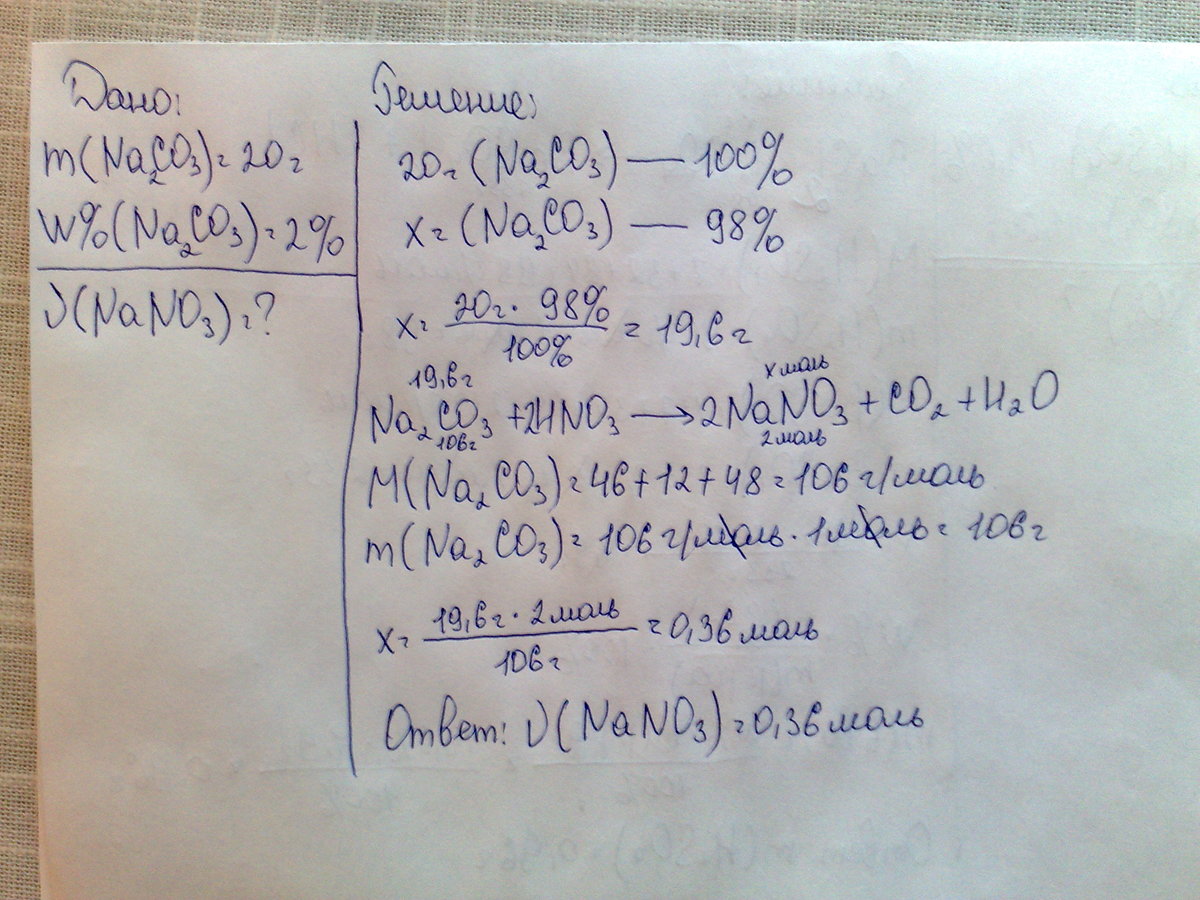 Дано:
m(Na₂CO₃) = 20г
W%(Na₂CO₃) = 2%
ν(NaNO₃) = ?
Решение:
20г (Na₂CO₃) — 100%
x = (Na₂CO₃) — 98%
x = 20г · 98% / 100% = 19,6г
19,6г x моль
Na₂CO₃ + 2HNO₃ → 2NaNO₃ + CO₂ + H₂O
106г 2 моль
M(Na₂CO₃) = 46 + 12 + 48 = 106 г/моль
m(Na₂CO₃) = 106 г/моль · 1моль = 106г
x = 19,6г · 2 моль / 106г = 0,36 моль
Ответ: ν(NaNO₃) = 0,36 моль